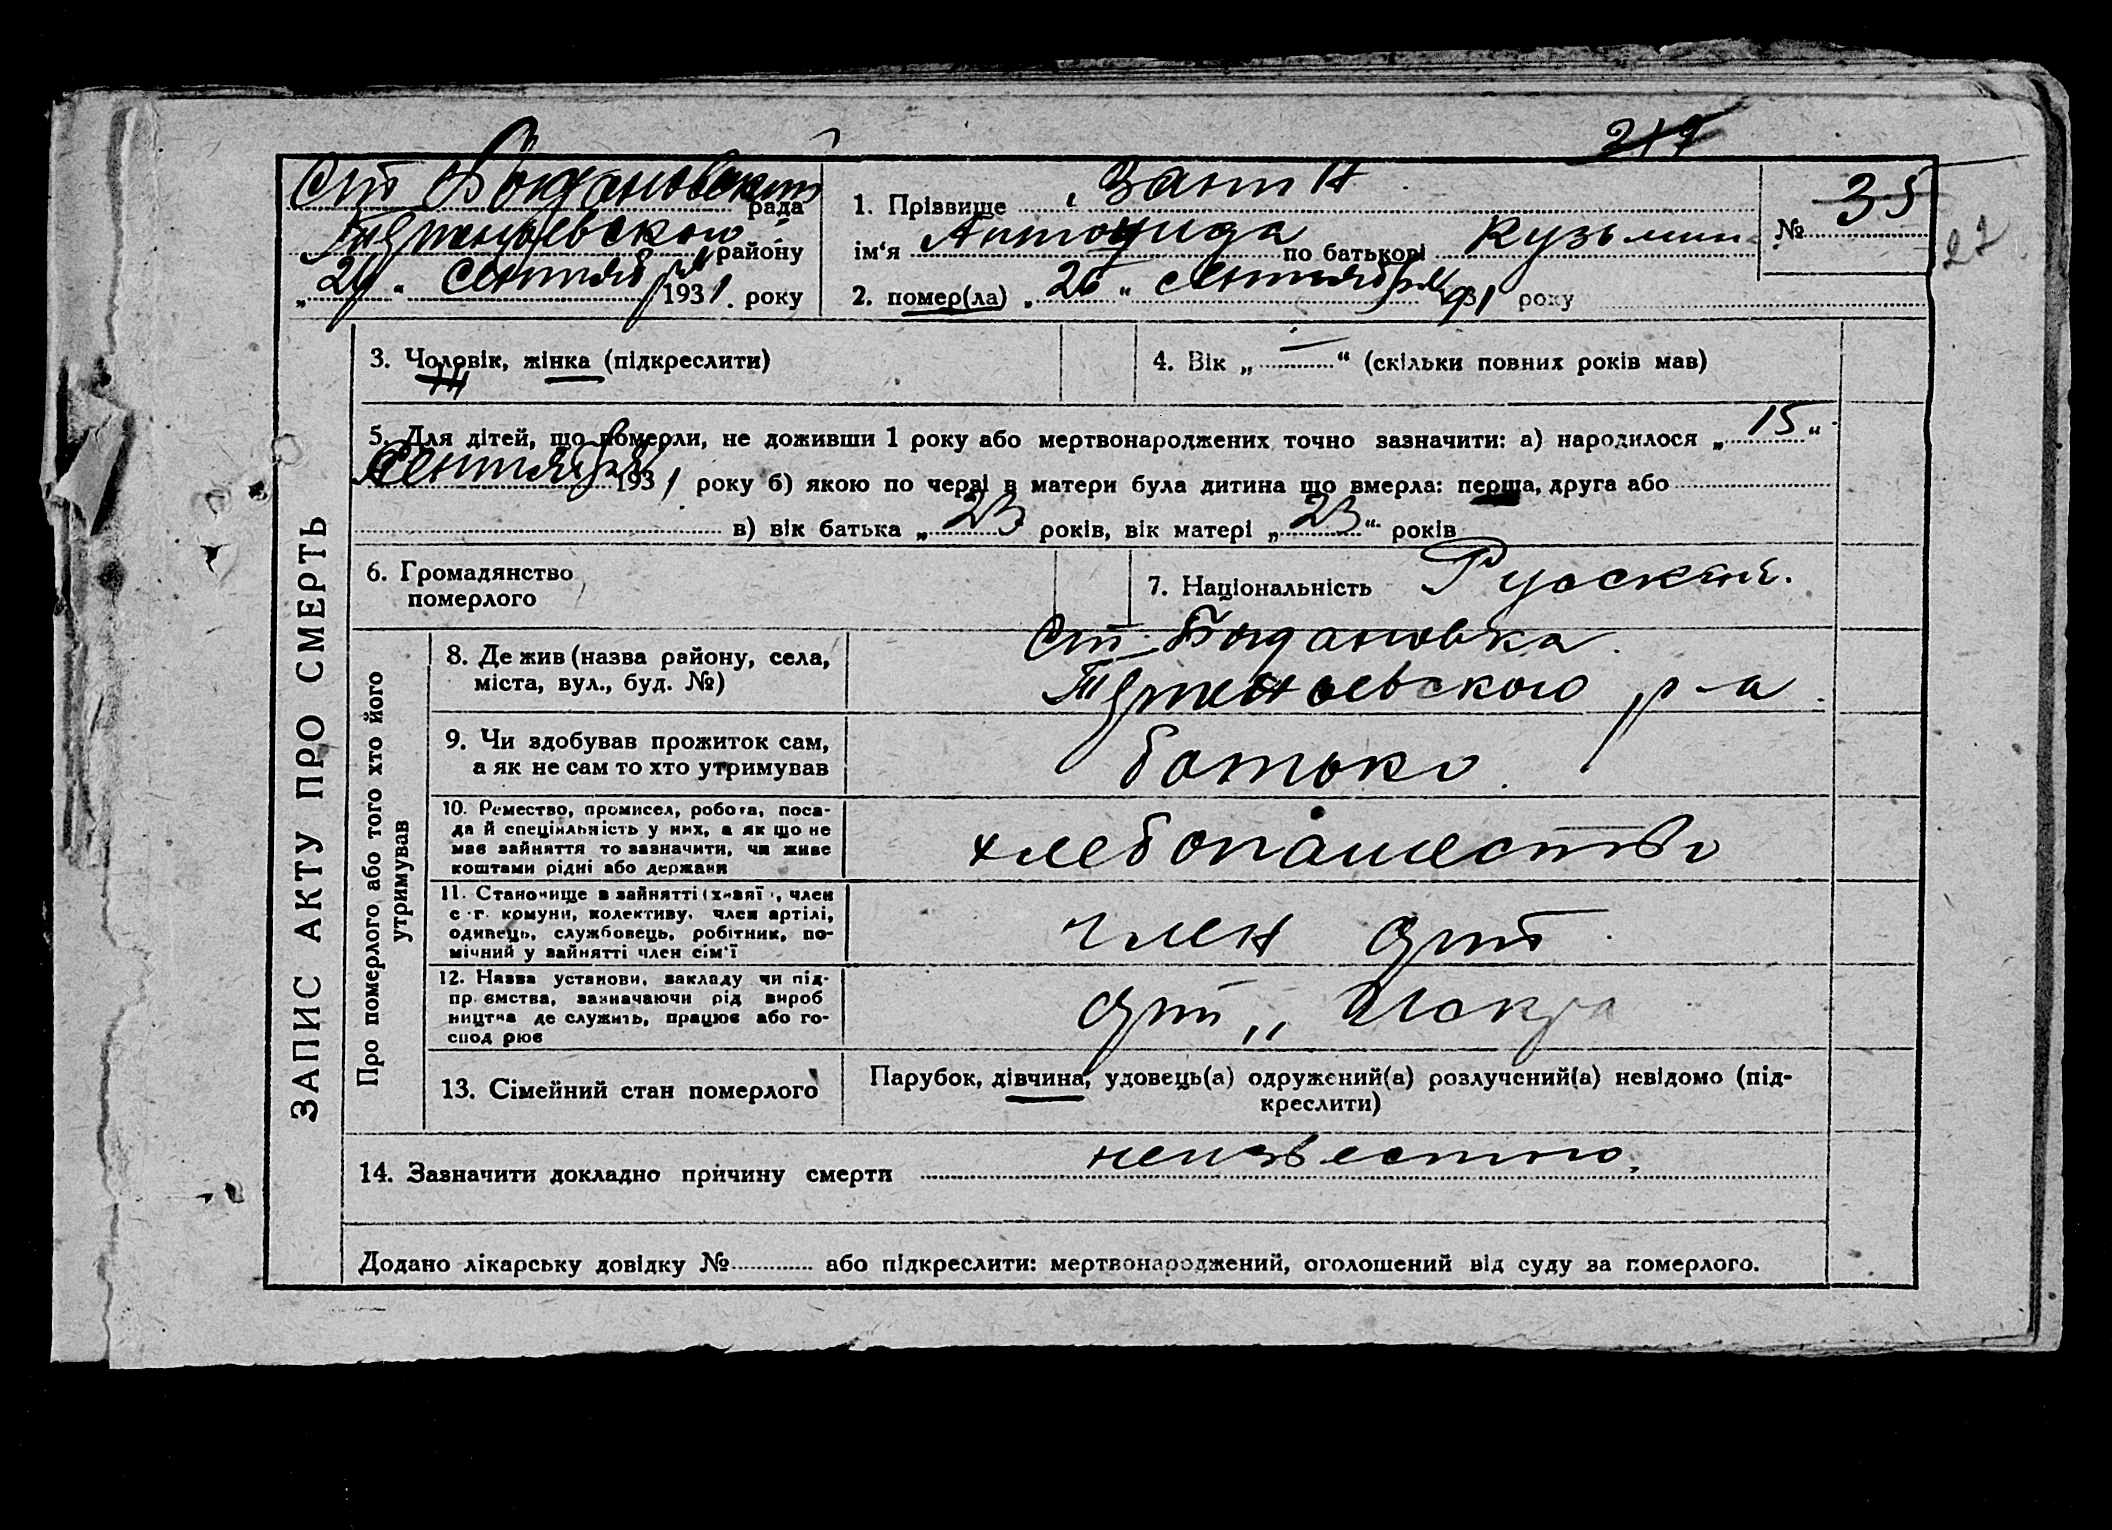 217
Ст Богдановский рада
района району
„ 29 “ сентября 1931 . року
1. Прізвище Заит Н
№ 35
27
ім‘я Антонида по батькові Кузьмин
2. помер(ла) „ 26 “ сентября 1931 року
3. Чоловік, жінка (підкреслити)
4. Вік „ — “ (скільки повних років мав)
5. Для дітей, що померли, не доживши 1 року або мертвонароджених точно зазначити: а) народилося „ 15 “
Сентября 1931 року б) якою по черзі в матери була дитина що вмерла: перша, друга або
в) вік батька „ 23 років, вік матері „ 23 “ років
6. Громадянство
померлого
7. Національність Руоский.
ЗАПИС АКТУ ПРО СМЕРТЬ
Про померлого або того хто його
утримував
8. Де жив (назва району, села,
міста, вул., буд. №)
Ст Богдановка
р-а
9. Чи здобував прожиток сам,
а як не сам то хто утримував
батько
10. Ремество, промисел, робота, поса-
да й спеціяльність у них, а як що не
має зайняття то зазначити, чи живе
коштами рідні або держави
хлебопашество
11. Становище в зайнятті (хазяї , член
с.-г. комуни, колективу, член артілі,
одинець, службовець, робітник, по-
мічний у зайнятті член сім'ї
член арт
12. Назва установи, закладу чи під-
пр ємства, зазначаючи рід вироб
ництва де служить, працює або го-
спод рює
арт „ Искра
13. Сімейний стан померлого
Парубок, дівчина, удовець(а) одружений(а) розлучений(а) невідомо (під-
креслити)
14. Зазначити докладно причину смерти неизвестно,
Додано лікарську довідку № або підкреслити: мертвонароджений, оголошений від суду за померлого.